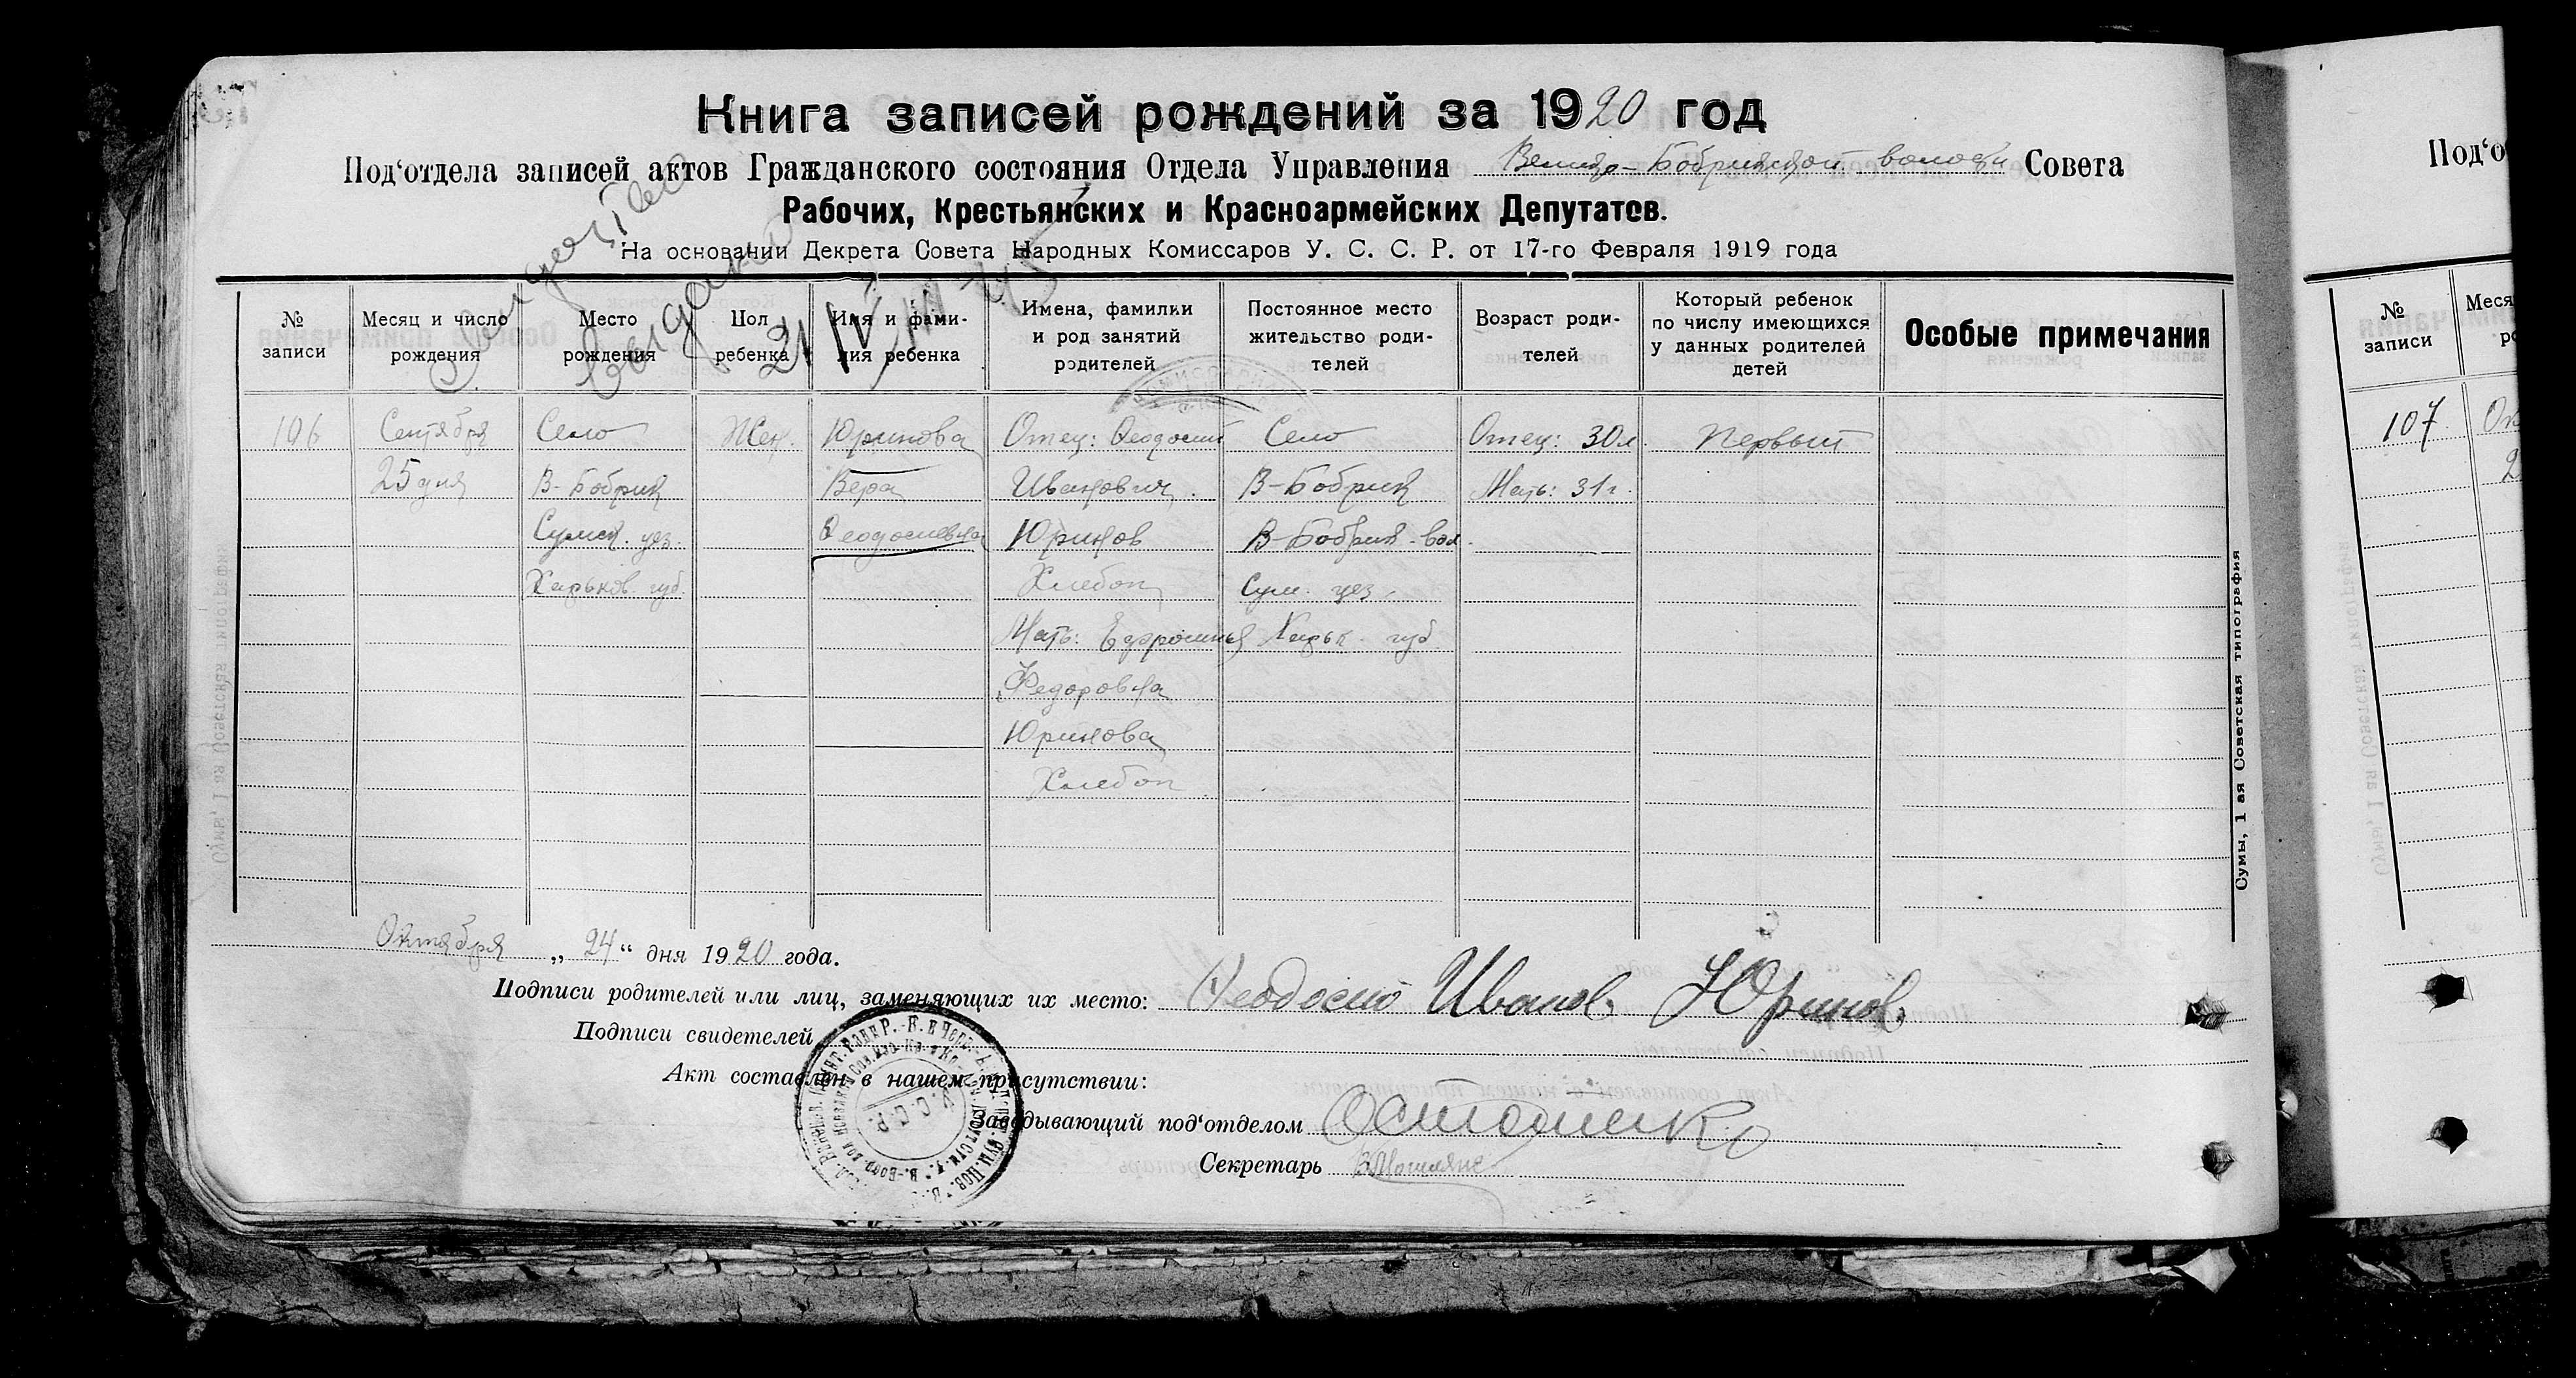 Книга записей рождений за 1920 год
Под‘отдела записей актов Гражданского состояния Отдела Управления Велико-Бобрикской волости Совета
Рабочих, Крестьянских и Красноармейских Депутатов.
На основании Декрета Совета Народных Комиссаров У. С. С. Р. от 17-го Февраля 1919 года
№ записи
Месяц и число рождения
Место рождения
Пол ребенка
Имя и фамилия ребенка
Имена, фамилии и род занятий родителей
Постоянное место жительство родителей
Возраст родителей
Который ребенок по числу имеющихся у данных родителей детей
Особые примечания
106 Сентября Село Жен. Юринова Отец: Ѳеодосий Село Отец: 30л. Первый
25 дня В-Бобрик Вера Иванович В-Бобрик Мать: 31г.
Сумск. уез. Ѳеодосиевна Юринов В-Бобрик. вол.
Харьков. губ. Хлебоп. Сум. уез.
Мать: Ефросинья Харьк. губ.
Федоровна
Юринова
Хлебоп
Октября „24“ дня 1920 года.
Подписи родителей или лиц, заменяющих их место: Ѳеодосий Иванов Юринов
Подписи свидетелей
Акт составлен в нашем присутствии:
Заведывающий под‘отделом
Секретарь
У.С.С.Р.
Сумы, 1 ая Советская типография
Под‘о
№ записи
Меся
107